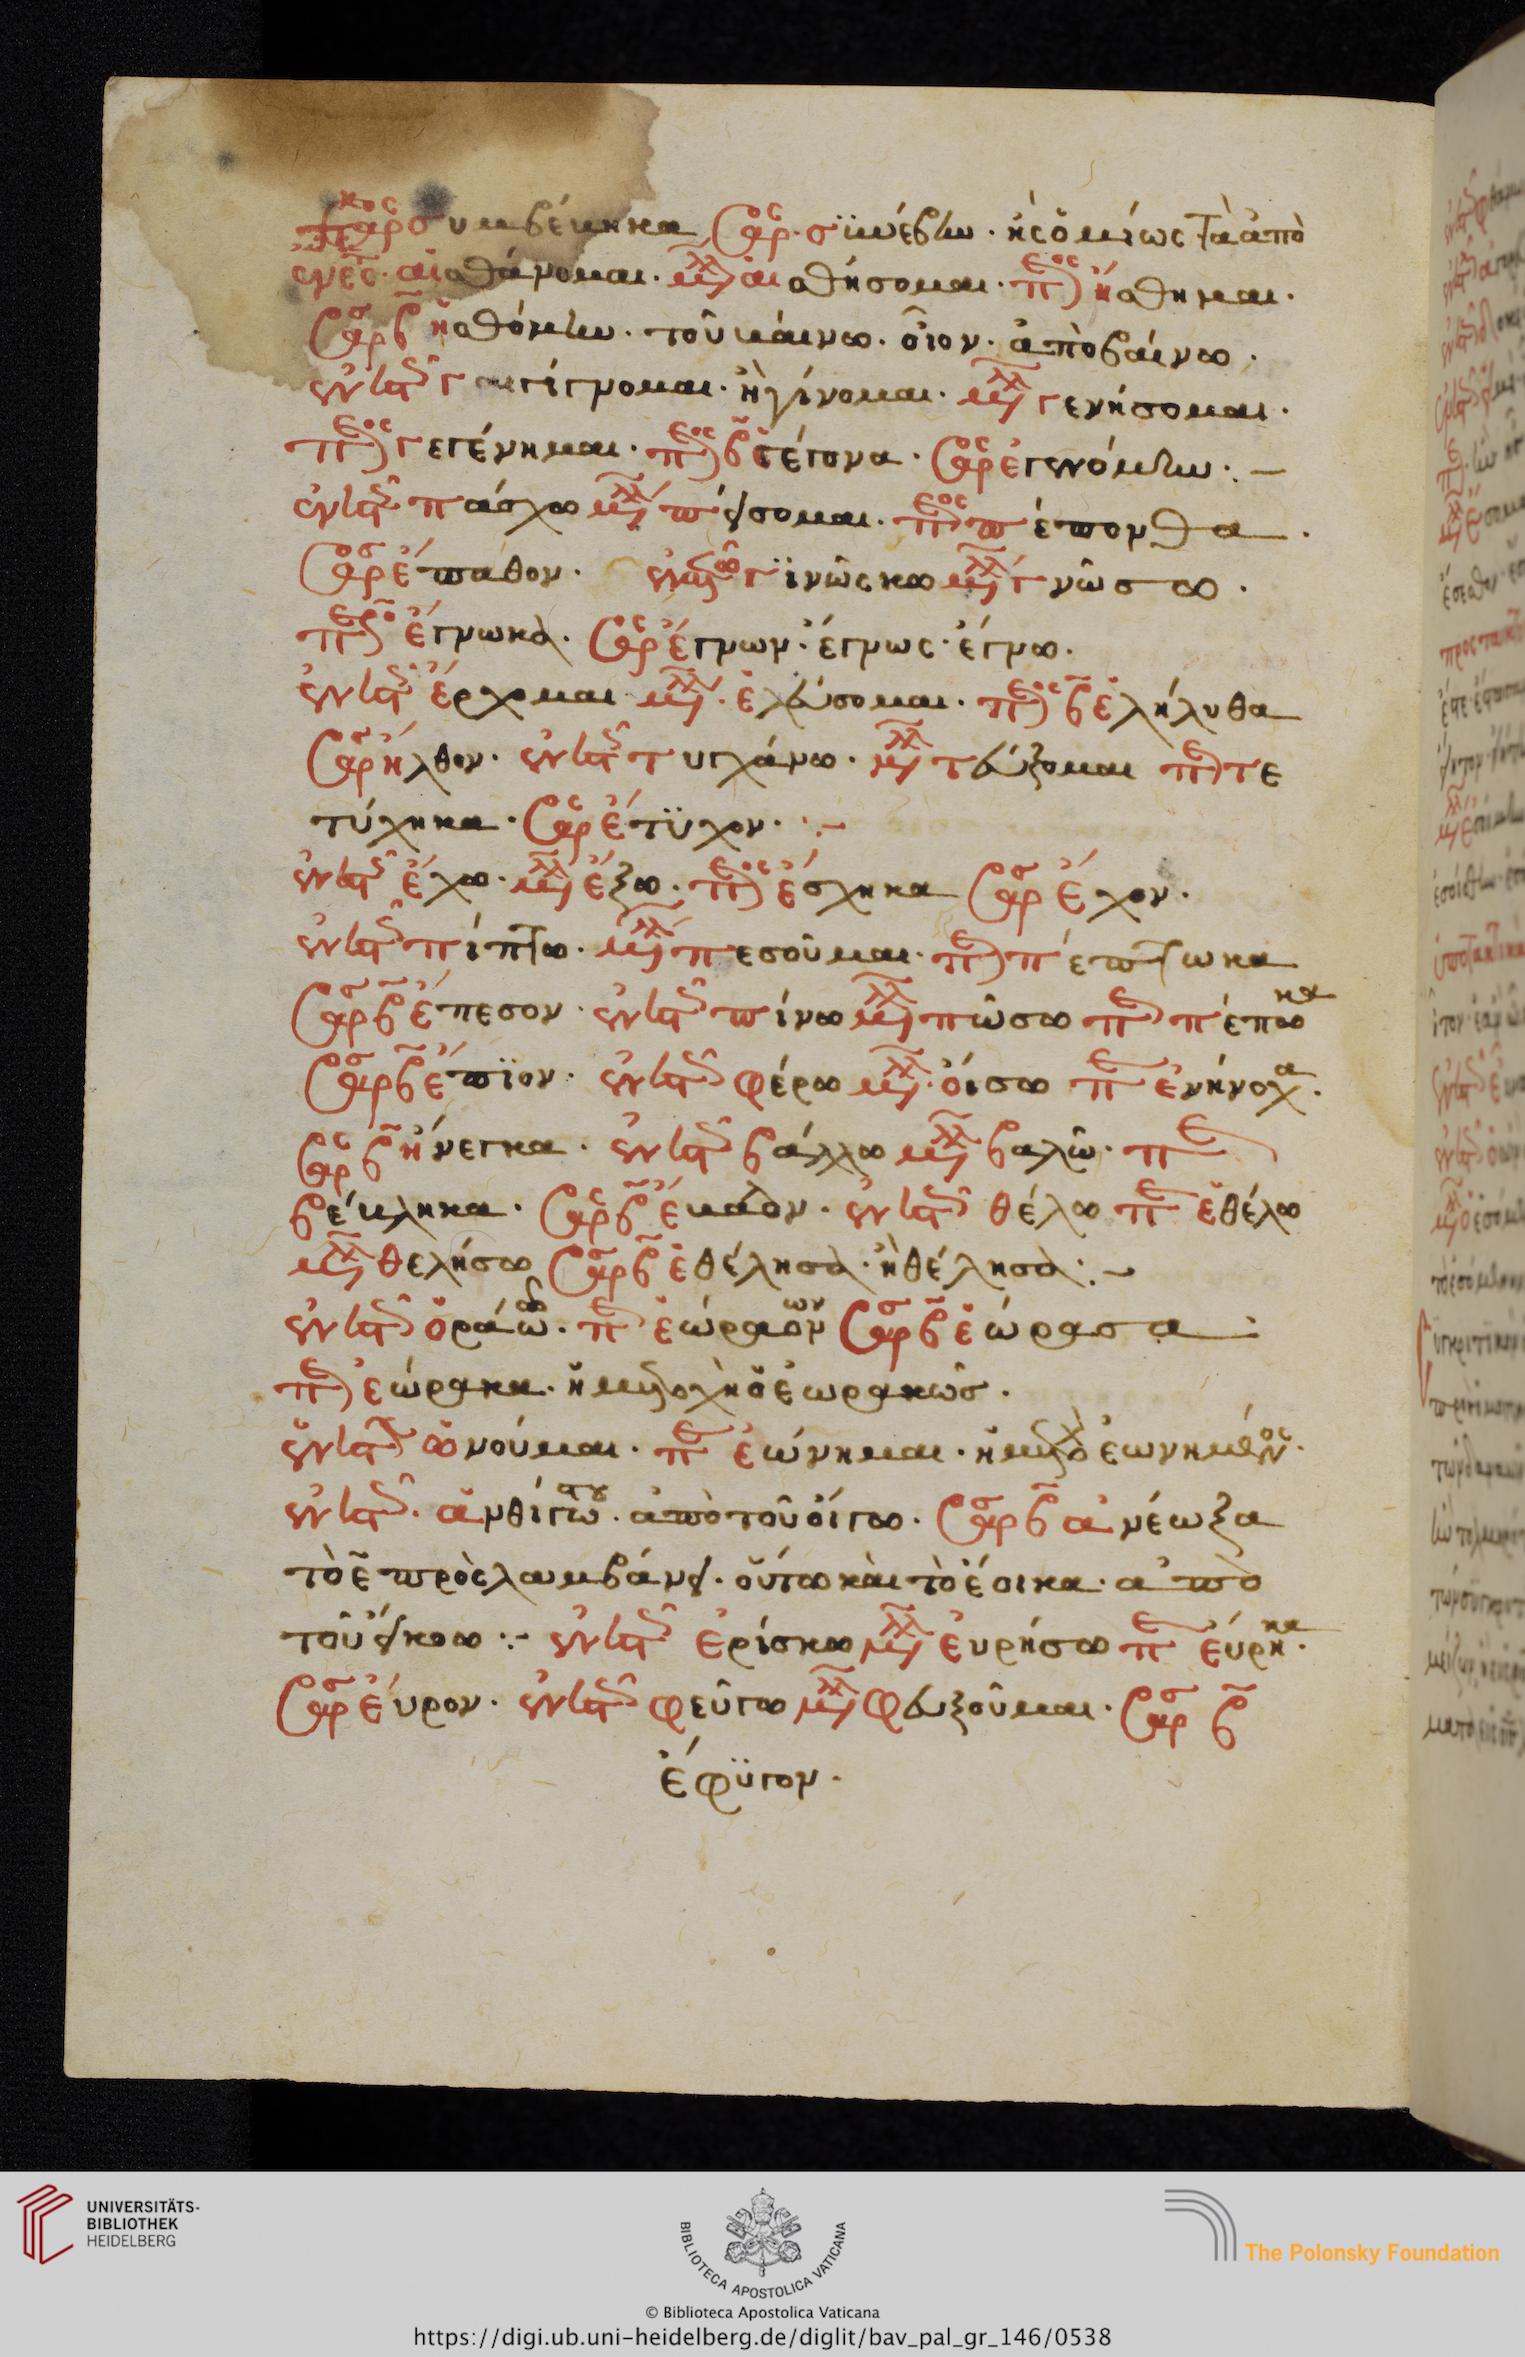 συμβέικηκα ἀόρ · σϋνέβην · ἢ ὁμοίως τὰ ἀπὸ
αἰσθάνομαι · μλλ αἰσθήσομαι · π ἤσθημαι ·
ἀόρ β ἠσθόμην · τοῦ κάινω · οἷον · ἀπὸβαίνω ·
ἐνεστ γίγνομαι · ἢ γίνομαι · μλλ γενήσομαι ·
π γεγένημαι · π β γέγονα · ἀόρ ἐγενόμην · –
ἐνεστ πάσχω μλλ πείσομαι · π πέπονθα ·
ἀόρ έπαθον · ἐνεστ γϊνῶσκω μλλ γνῶσω ·
π έγνωκα · ἀόρ έγνων · έγνως · έγνω ·
ἐνεστ έρχομαι μλλ · ἐλεύσομαι · π β ἐλήλυθα
ἀόρ ήλθον · ἐνεστ τυγχάνω · μλλ τεύξομαι π τε
τύχηκα · ἀόρ έτϋχον · :–
ἐνεστ έχω · μλλ έξω · π έσχηκα ἀόρ έχον ·
ἐνεστ πίπτω · μλλ πεσοῦμαι · π πέπτωκα
ἀόρ β έπεσον · ἐνεστ πίνω μλλ πῶσω π πέπωκα
ἀόρ β έπϊον · ἐνεστ φέρω μλλ · όισω π ἐνήνοχα ·
ἀόρ β ήνεγκα · ἐνεστ βάλλω μλλ βαλῶ · π
βέικληκα · ἀόρ β έκαλον · ἐνεστ θέλω π ἐθέλω
μλλ θελήσω ἀόρ β ἐθέλησα · ἢ θέλησα :–
ἐνεστ ὁράω · π ἐώραον ἀόρ β ἐώρασα :
π ἐώρακα · ἡ μετοχὴ ὁ ἐωρακῶς ·
ἐνεστ ὠνούμαι · π ἐώνημαι · ἡ μετοχ ὁ ἐωνημένος ·
ἐνεστ · ἀπὸ τοῦ οίγω · ἀόρ β ἀνέωξα
τὸ ε πρὸςλαμβάνει · ούτω καὶ τὸ έοικα · ἀπὸ
τοῦ είκω :– ἐνεστ ἐρίσκω μλλ ἐυρήσω π εύρηκα ·
ἀόρ εύρον · ἐνεστ φεῦγω μλλ φευξοῦμαι · ἀόρ β
έφϋγον ·
UNIVERSITÄTS-
BIBLIOTHEK
HEIDELBERG
BIBLIOTECA APOSTOLICA VATICANA
The Polonsky Foundation
© Biblioteca Apostolica Vaticana
https://digi.ub.uni-heidelberg.de/diglit/bav_pal_gr_146/0538